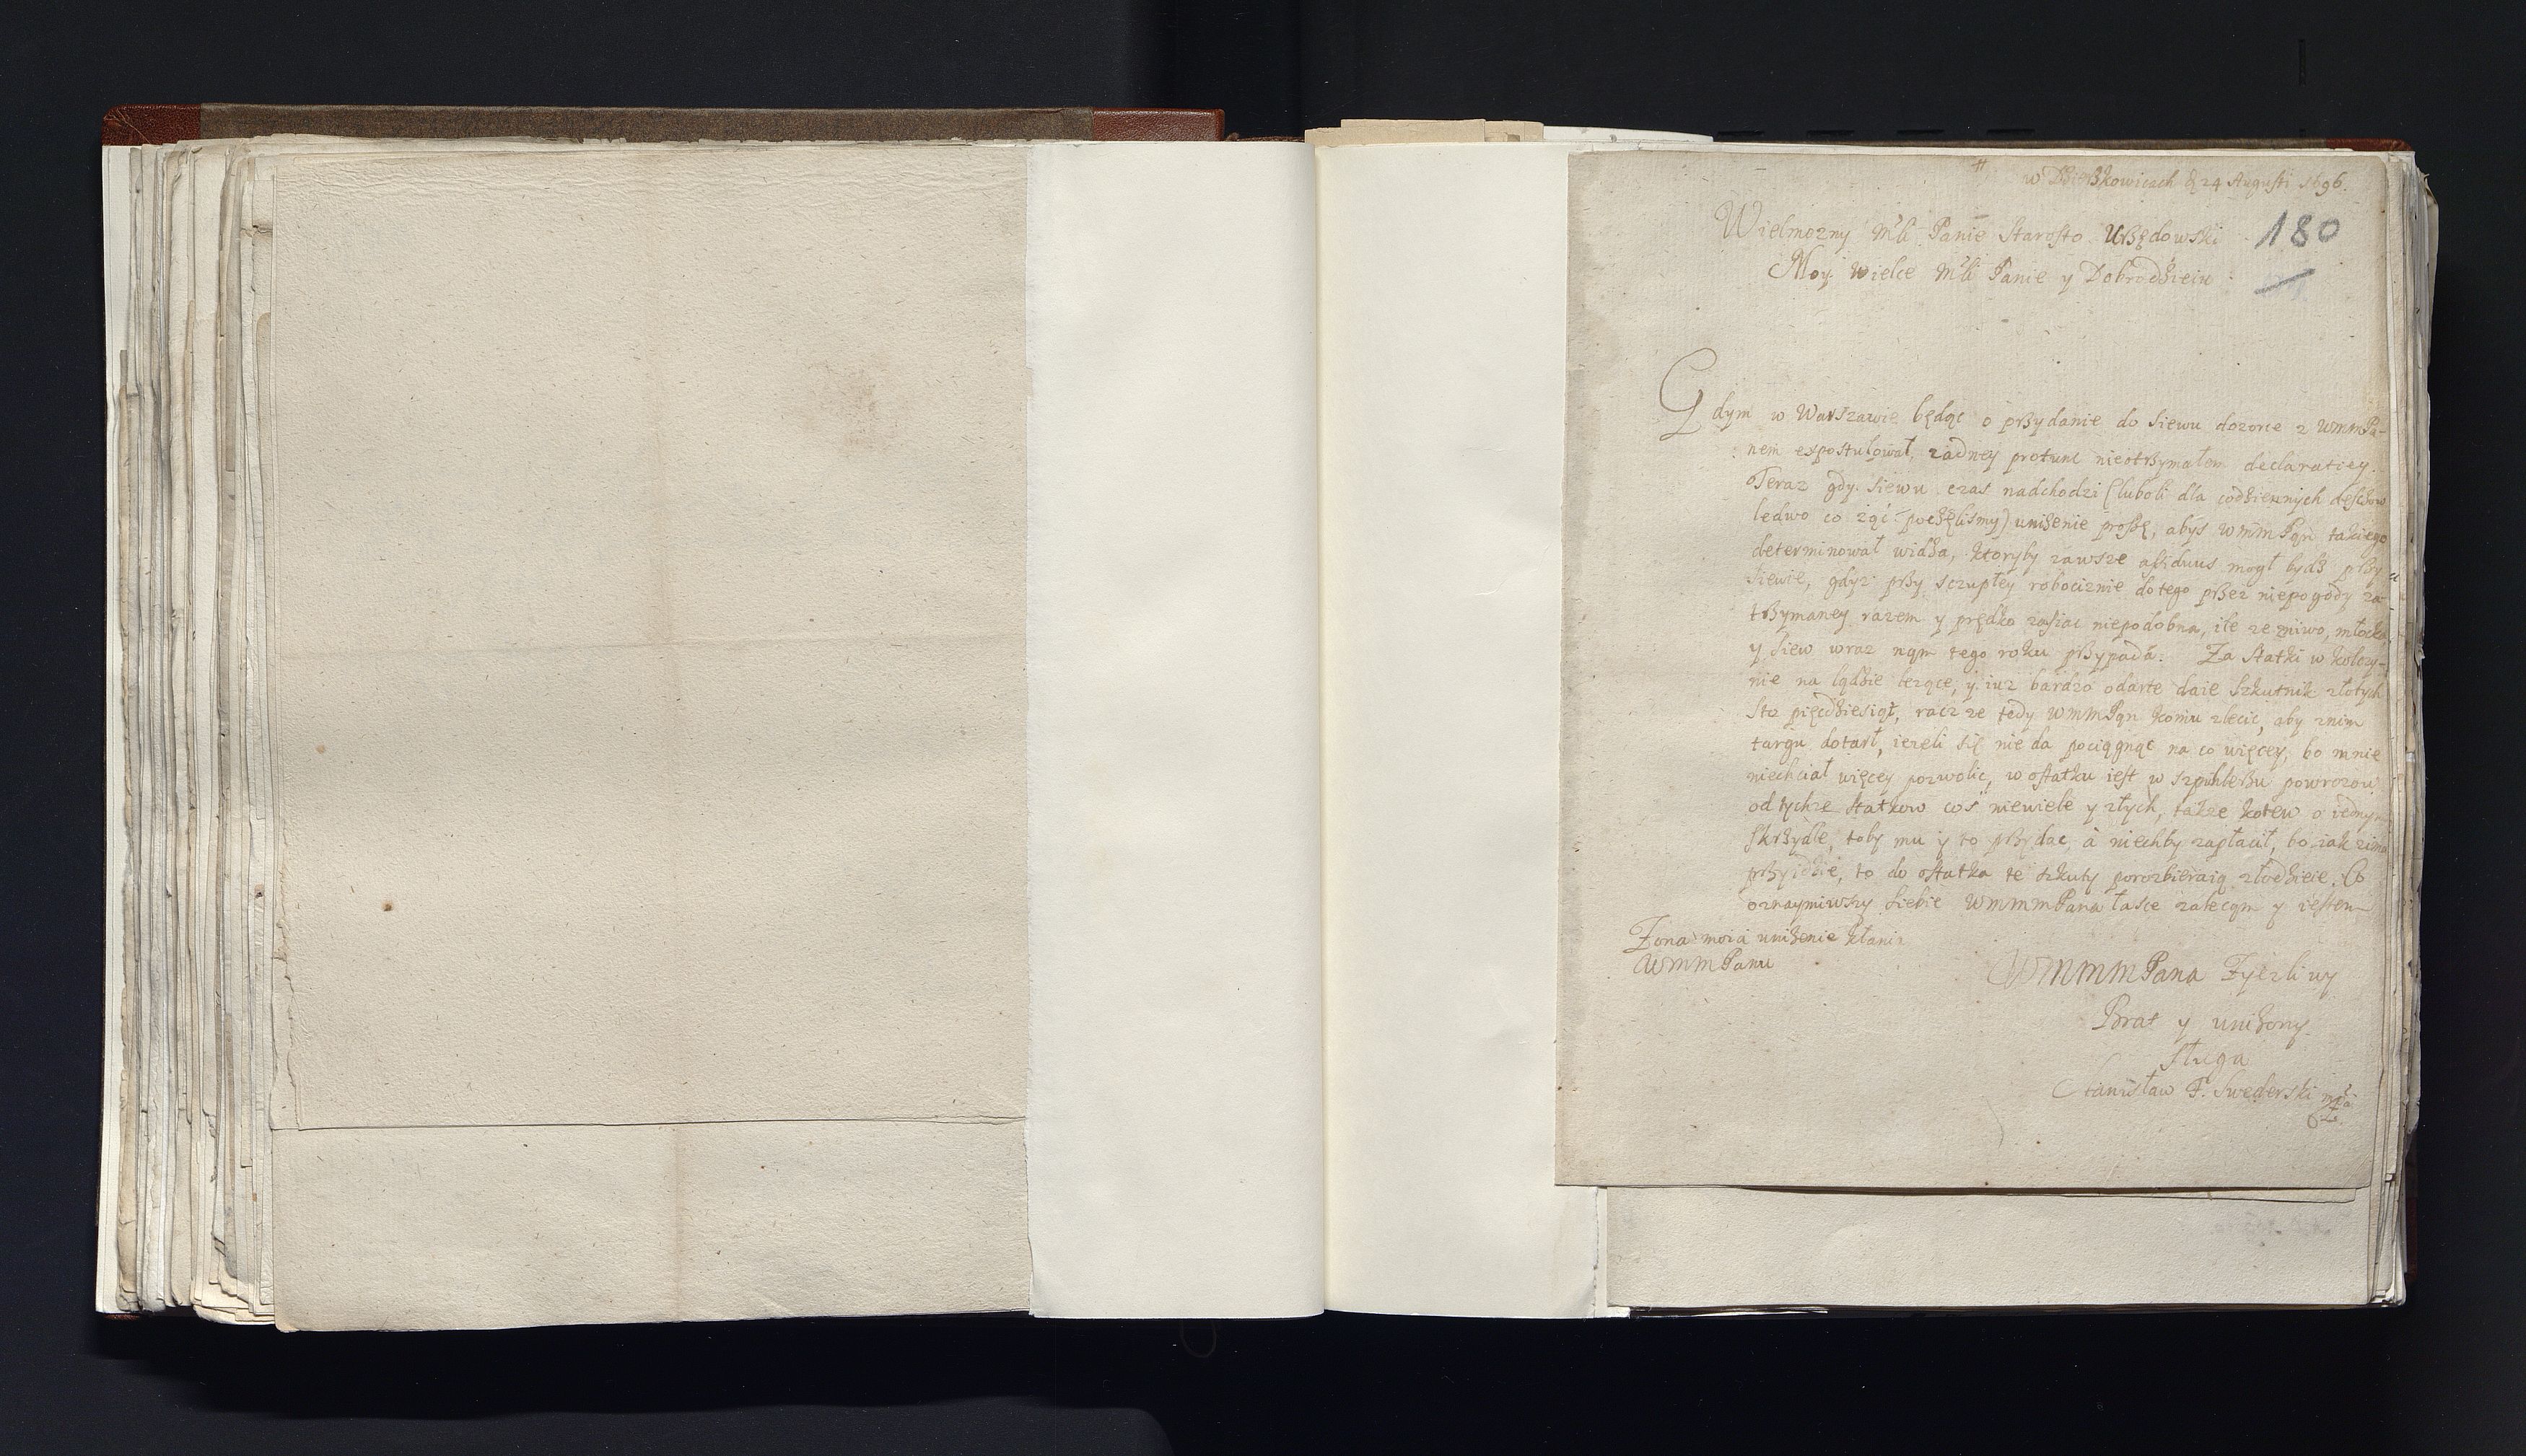 w Dzierżkowicach d 24 Augusti 1696.
180
Wielmozny Mśći Panie Starosto Urzędowski
Moy Wielce Mśći Panie y Dobrodzieiu
Gdym w Warszawie będąc o przydanie do siewu dozorce z WMMPa-
nem expostulował, zadney protunc nieotrzymałem declaratiey.
Teraz gdy siewu czas nadchodzi (luboli dla codziennych deszczow
ledwo co ząć poczęlismy) unizenie proszę, abys WMMPan takiego
determinował widza, ktoryby zawsze assiduus mogł bydz przy
siewie, gdyz przy sczupłey robociznie do tego przez niepogody za-
trzymaney razem y prędko zasiac niepodobna, ile ze zniwo, młocka,
y siew wraz nąm tego roku przypada. Za statki w kolczy-
nie na lądzie lezące, y iuz bardzo odarte daie szkutnik złotych
sto pięcdziesiąt, racz ze tedy WMMPan komu zlecic, aby znim
targu dotarł, iezeli się nie da pociągnąc na co więcey, bo mnie
niechciał więcey pozwolic, w ostatku iest w szpichlerzu powrozow
od tychze statkow cos niewiele y złych, takze kotew o iednym
skrzydle, toby mu y to przydac, à niechby zapłacił, bo iak zima
przyidzie, to do ostatka te szkuty porozbieraią złodzieie. Co
oznaymiwszy siebie WMMMPana łasce zalecąm y iestem
Zona moia unizenie kłania
WMMPanu
WMMMPana Zyczliwy
Brat y unizony
sługa
Stanisław F. Swederski mp